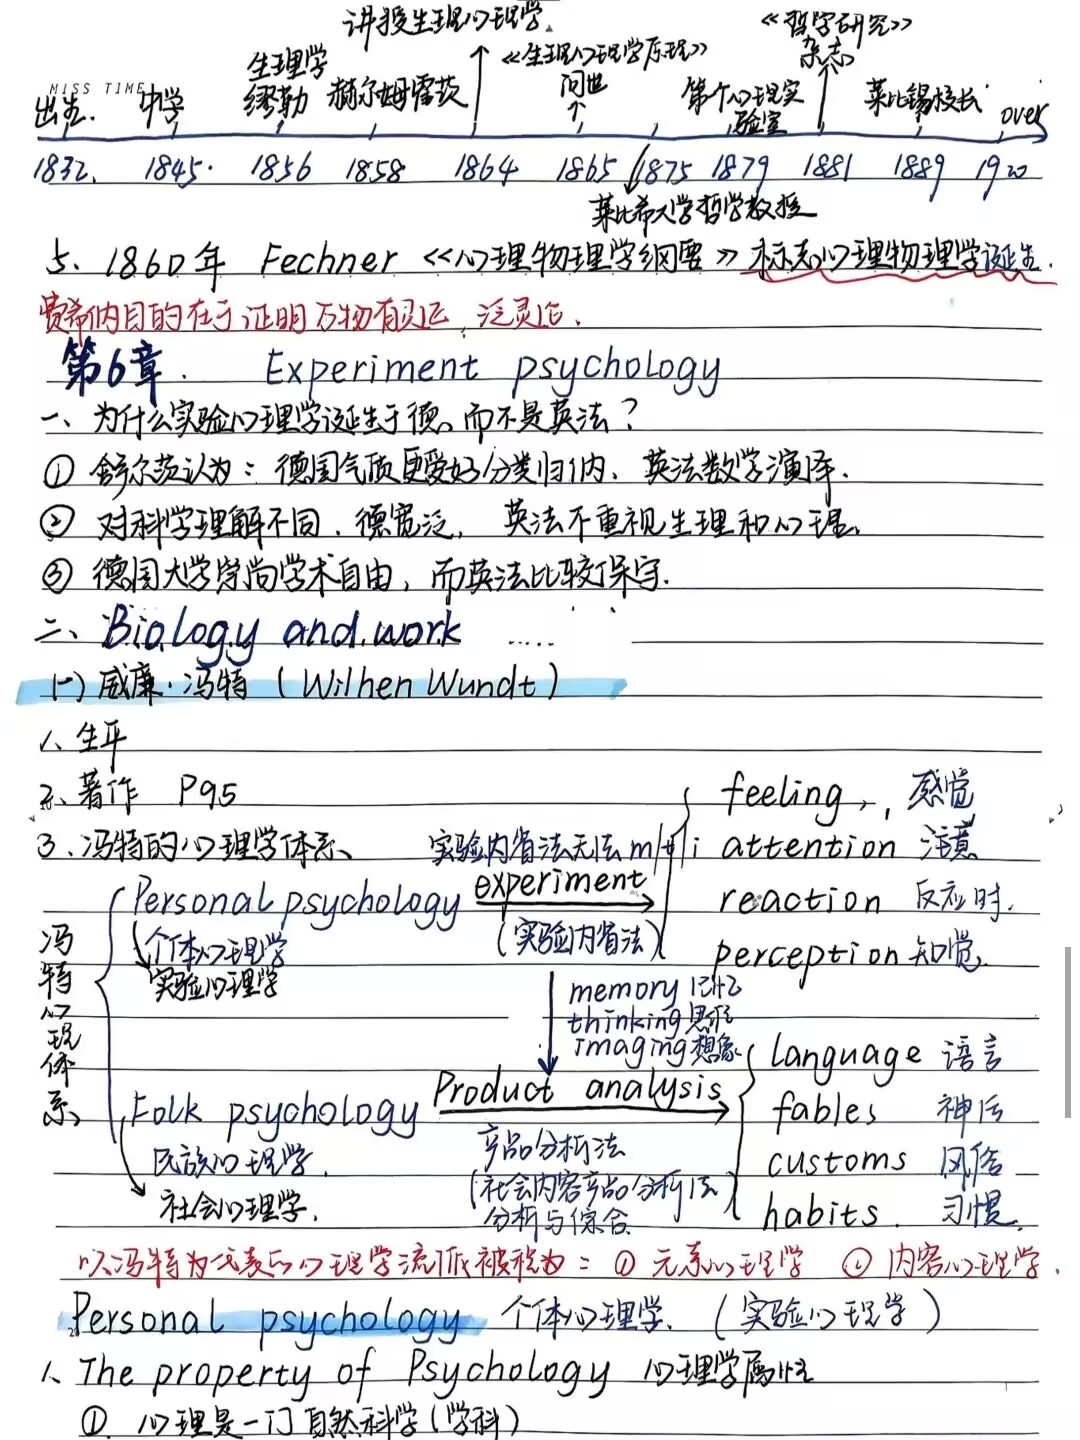 讲授生理心理学
《哲学研究》
杂志
生理学
缪勒
赫尔姆霍茨
《生理心理学原理》
问世
第一个心理实
验室
莱比锡校长
over
MISS TIME
出生.
中学
1832. 1845. 1856 1858 1864 1865 1875 1879 1881 1889 1920
莱比希大学哲学教授
5、1860年 Fechner《心理物理学纲要》标志心理物理学诞生.
费希纳目的在于证明万物有灵论,泛灵论.
第6章. Experiment psychology
一、为什么实验心理学诞生于德、而不是英法?
① 舒尔茨认为: 德国气质更爱好分类归纳、英法数学演绎.
② 对科学理解不同.德宽泛, 英法不重视生理和心理.
③ 德国大学崇尚学术自由,而英法比较保守.
二、Biology and work ......
(一) 威廉·冯特 (Wilhen Wundt)
1、生平
2、著作 P95
3、冯特的心理学体系、
实验内省法无法
feeling, 感觉
attention 注意
reaction 反应时.
perception 知觉
冯特心理体系
Personal psychology experiment
(实验内省法)
个体心理学
实验心理学
memory 记忆
thinking 思维
Imaging 想象
Folk psychology Product analysis
民族心理学.
社会心理学.
产品分析法
(社会内容产品分析法
分析与综合
language 语言
fables 神话
customs 风俗
habits. 习惯.
以冯特为代表的心理学流派被称为: ① 元素心理学 ② 内容心理学.
Personal psychology 个体心理学. (实验心理学)
1、The property of Psychology 心理学属性
①. 心理是一门自然科学(学科)